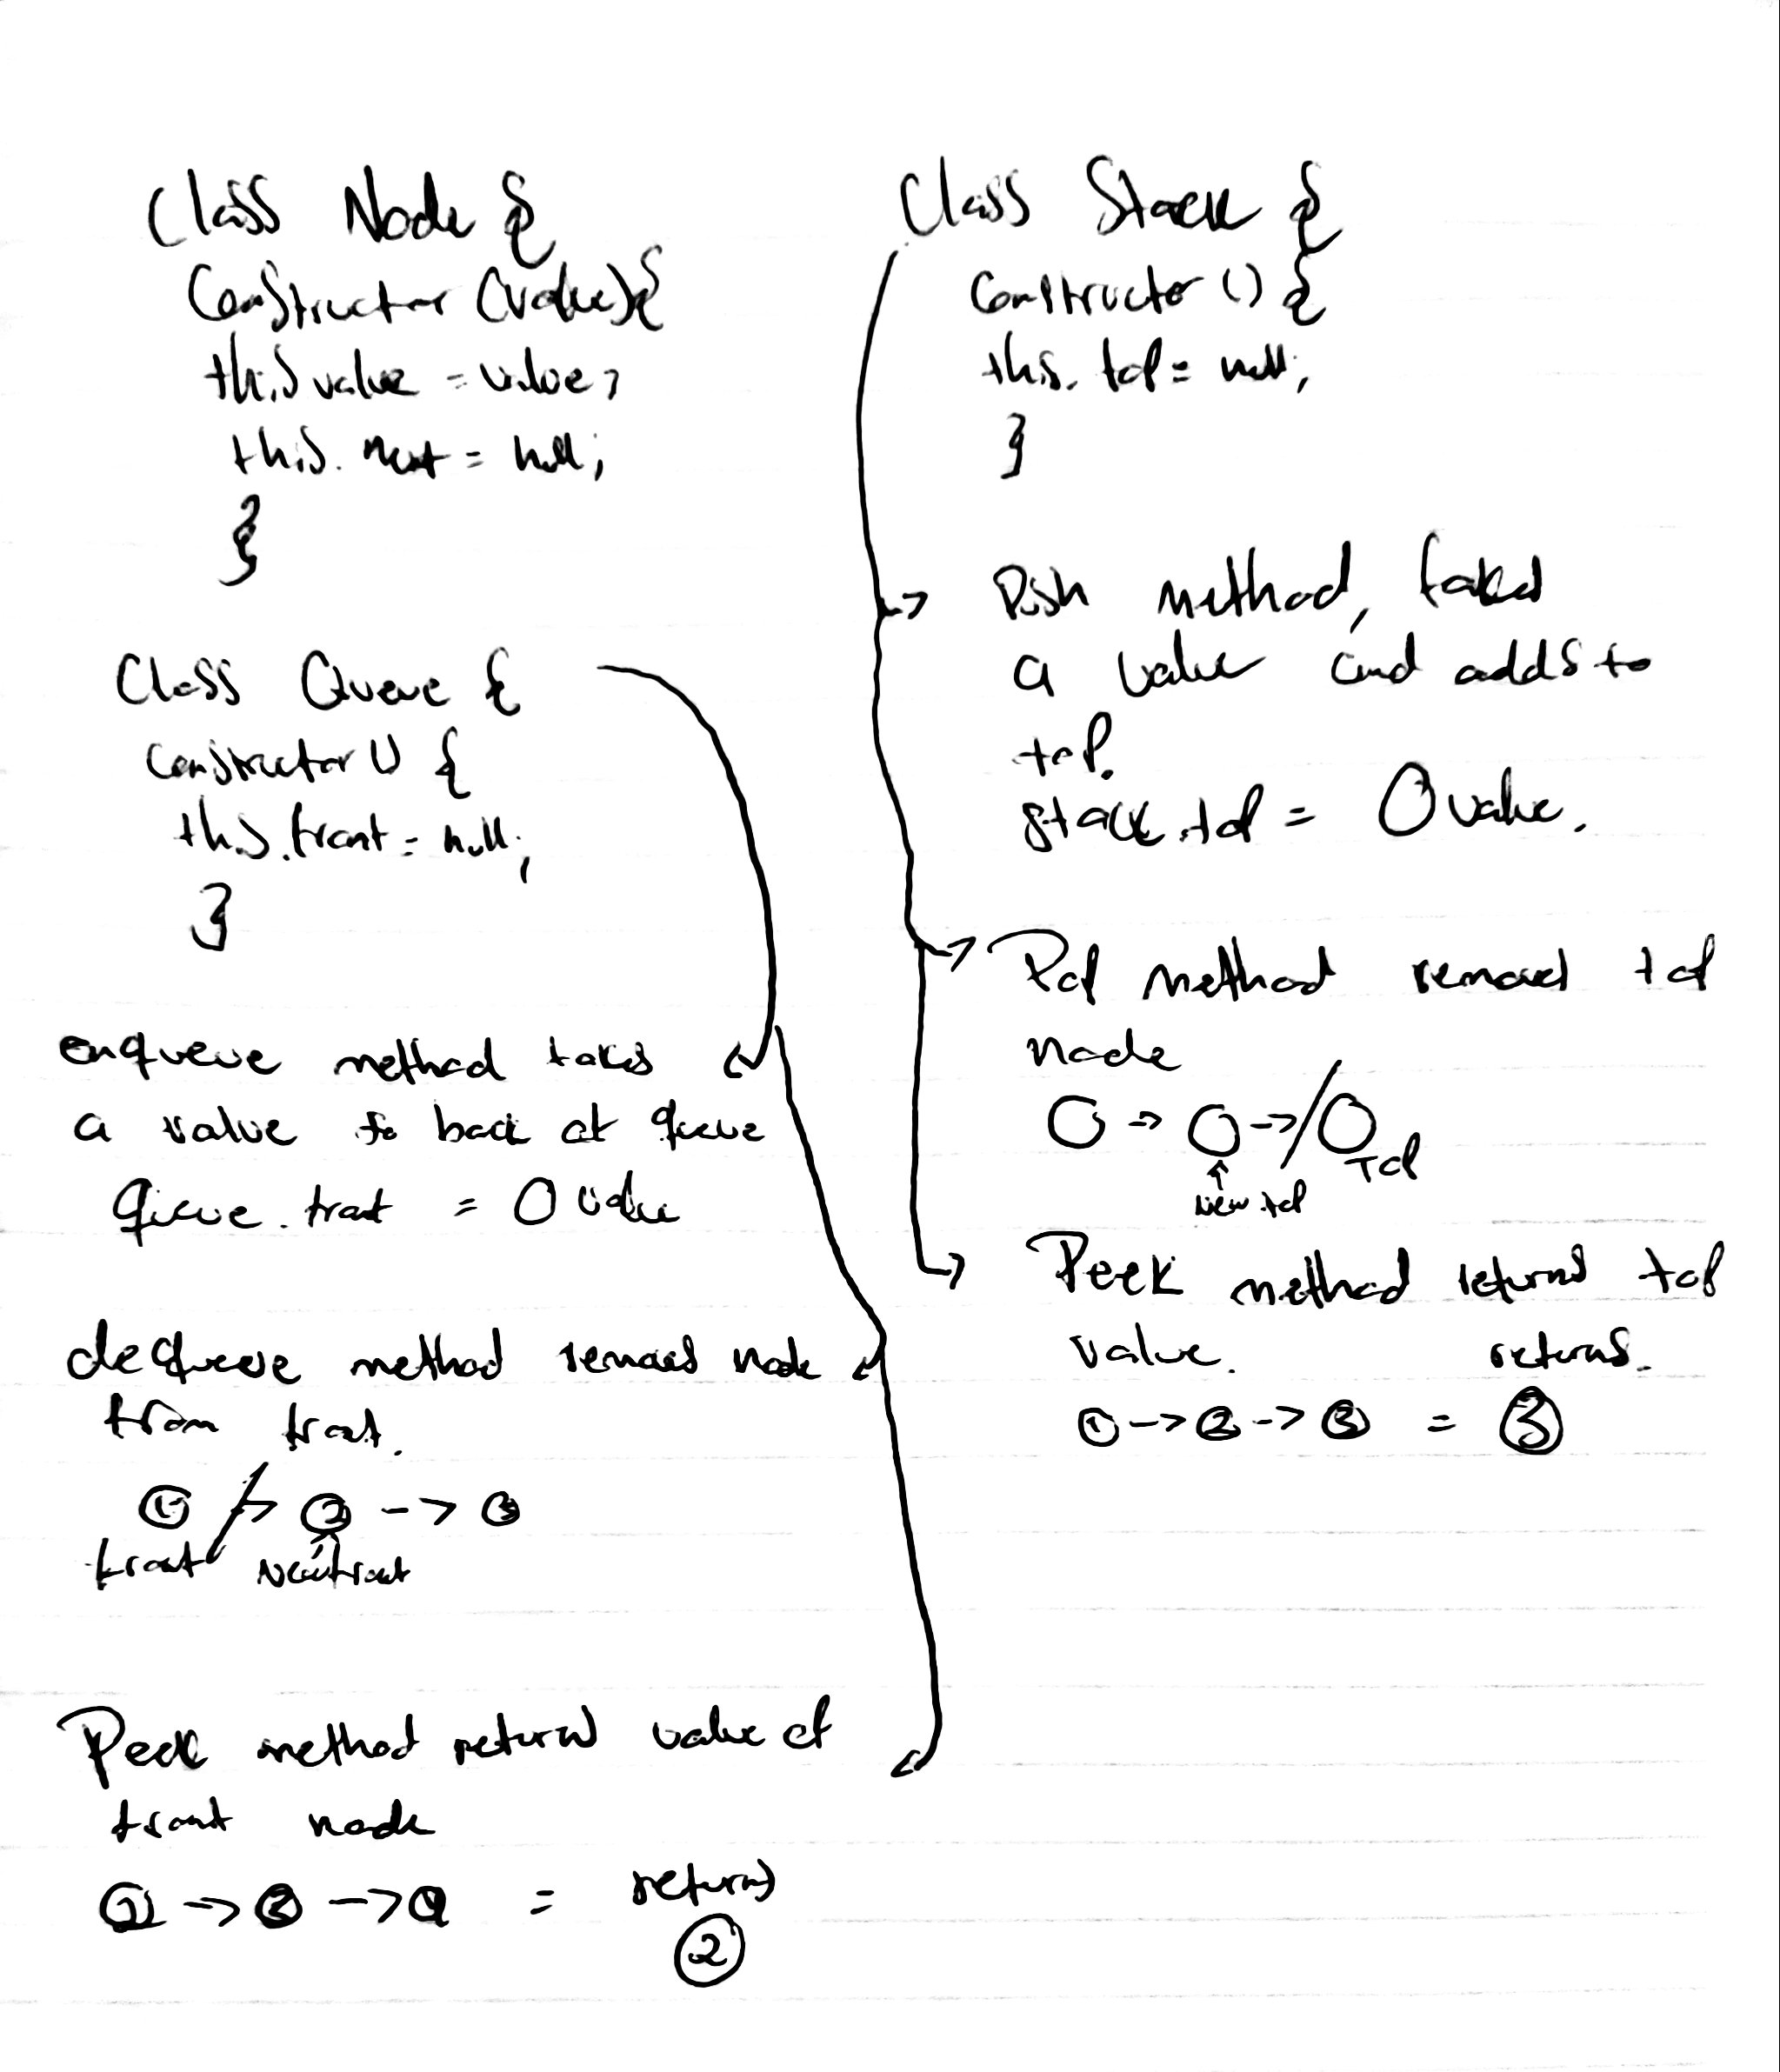 Class Node {
Constructor (value) {
this value = value;
this. next = null;
}
Class Queue {
constructor () {
this.front = null;
}
enqueue method takes
a value to back of queue
Queue. front = O value
dequeue method removes node
from front.
① -> ② -> ③
front New front
Peek method returns value of
front node
② -> ③ -> ④ = returns
②
Class Stack {
constructor () {
this. top = null;
}
-> Push method, takes
a value and adds to
top.
stack.top = O value.
-> Pop method removes top
node
O -> O -> O
Top
New top
-> Peek method returns top
value. returns.
① -> ② -> ③ = ③